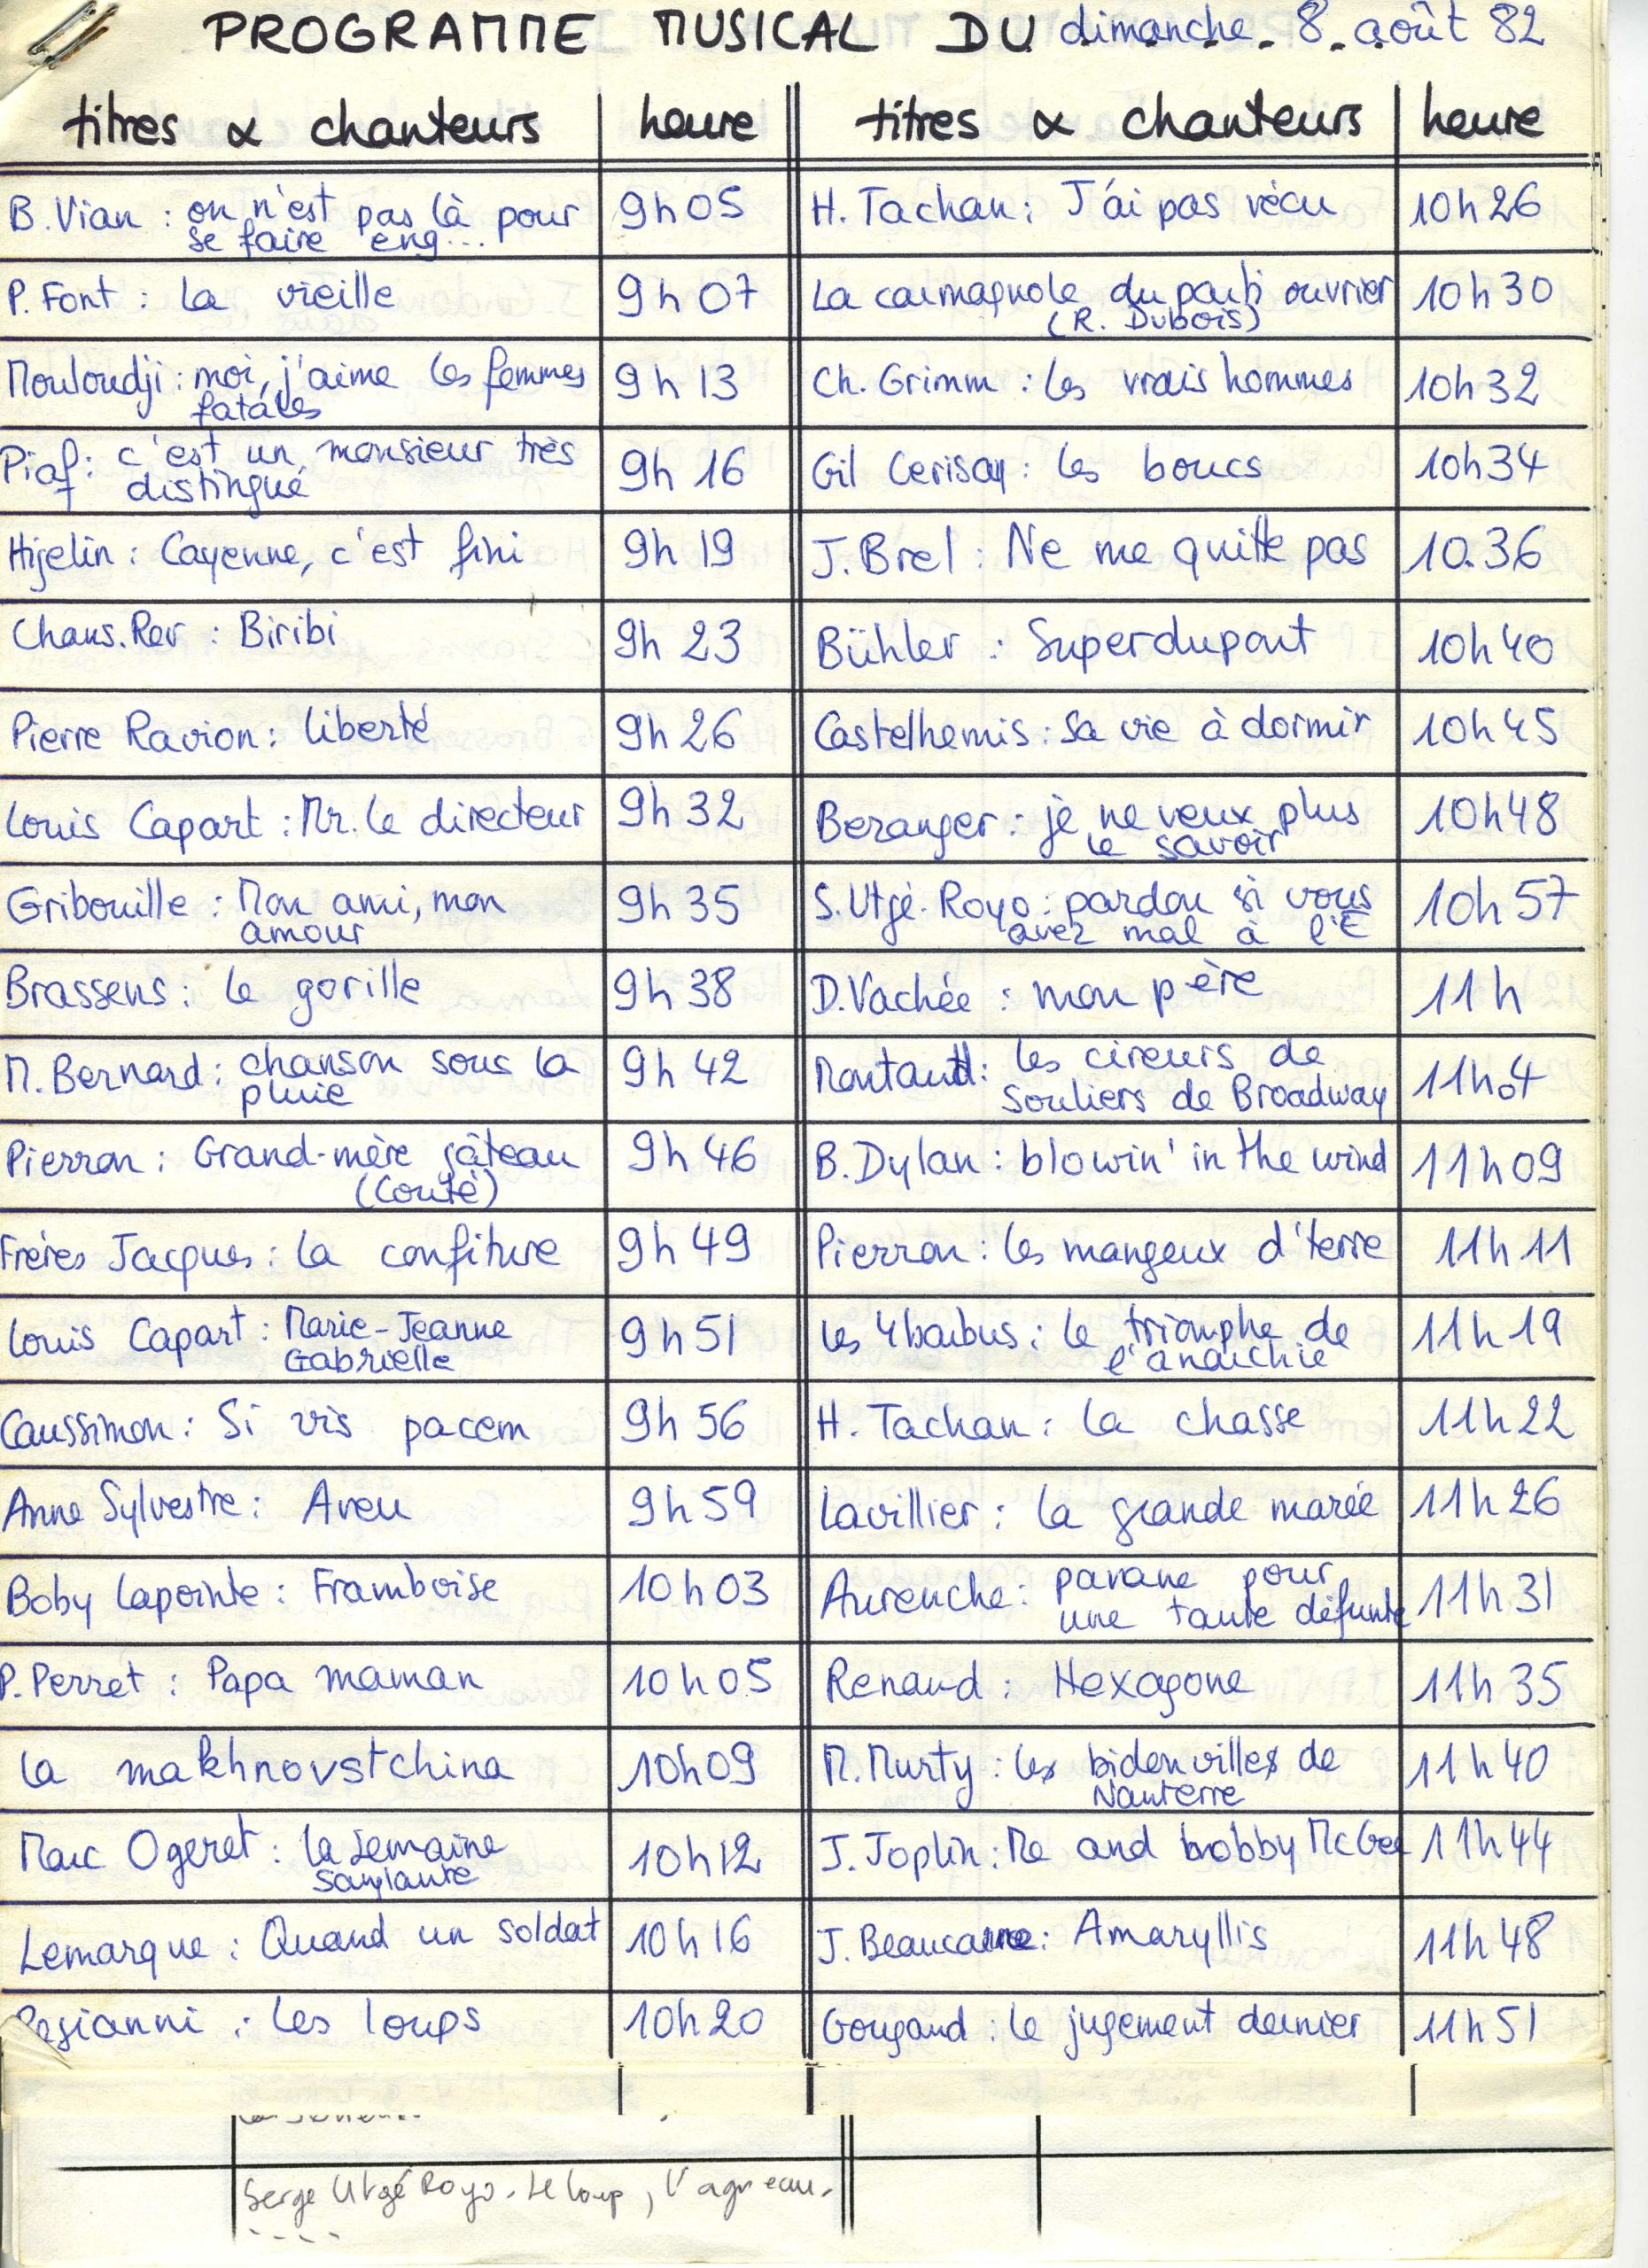 PROGRAMME MUSICAL DU dimanche 8 août 82
titres & chanteurs heure titres & chanteurs heure
B. Vian : on n'est pas là pour 9h05 H. Tachan : J'ai pas vécu 10h26
se faire eng...
P. Font : la vieille 9h07 La carmagnole du parti ouvrier 10h30
(R. Dubois)
Mouloudji : moi, j'aime les femmes 9h13 Ch. Grimm : les vrais hommes 10h32
fatales
Piaf : c'est un monsieur très 9h16 Gil Cerisay : les boucs 10h34
distingué
Hijelin : Cayenne, c'est fini 9h19 J. Brel : Ne me quitte pas 10.36
Chans. Rev : Biribi 9h23 Bühler : Superdupont 10h40
Pierre Ravion : liberté 9h26 Castelhemis : sa vie à dormir 10h45
Louis Capart : Mr. le directeur 9h32 Beranger : je ne veux plus 10h48
le savoir
Gribouille : Mon ami, mon 9h35 S. Utgé-Royo : pardon si vous 10h57
amour avez mal à l'E
Brassens : le gorille 9h38 D. Vachée : mon père 11h
M. Bernard : chanson sous la 9h42 Montand : les cireurs de 11h04
pluie souliers de Broadway
Pierron : Grand-mère gâteau 9h46 B. Dylan : blowin' in the wind 11h09
(Couté)
Frères Jacques : la confiture 9h49 Pierron : les mangeux d'terre 11h11
Louis Capart : Marie-Jeanne 9h51 les 4 barbus : le triomphe de 11h19
Gabrielle l'anarchie
Caussimon : Si vis pacem 9h56 H. Tachan : la chasse 11h22
Anne Sylvestre : Aveu 9h59 Lavillier : la grande marée 11h26
Boby Lapointe : Framboise 10h03 Aurenche : pavane pour 11h31
une tante défunte
P. Perret : Papa maman 10h05 Renaud : Hexagone 11h35
la makhnovstchina 10h09 M. Murty : les bidonvilles de 11h40
Nanterre
Marc Ogeret : la semaine 10h12 J. Joplin : Me and bobby McGee 11h44
sanglante
Lemarque : Quand un soldat 10h16 J. Beaucarne : Amaryllis 11h48
Regianni : les loups 10h20 Gougaud : le jugement dernier 11h51
Serge Utgé Royo. Le loup, l'agneau.